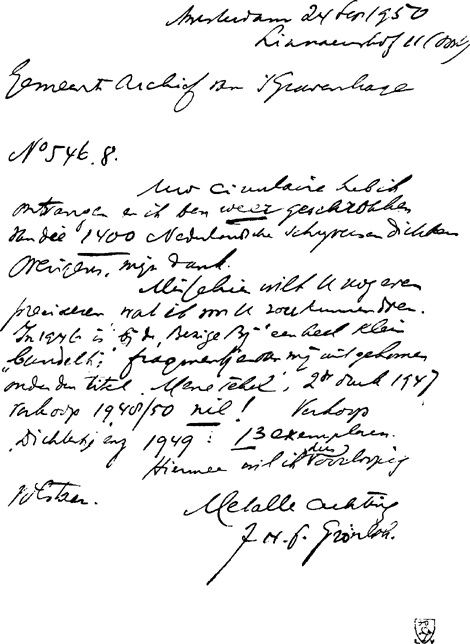 Amsterdam 24 Feb 1950
Linnaeushof 11 (Oost)
Gemeente Archief van 's Gravenhage
No 546.8.
Uw circulaire heb ik
ontvangen en ik ben weer geschrokken
van die 1400 Nederlandsche schryvers en dichters
Overigens, mijn dank.
Misschien wilt U nog even
preciseren wat ik voor U zou kunnen doen.
In 1946 is bij de "Bezige Bij" een heel klein
bundeltje fragmenten van mij uitgekomen
onder den titel "Mene Tekel", 2de druk 1947
Verkoop 1948/50 nil! Verkoop
"Dichterbij" eng 1949: 13 exemplaren.
Hiermee wil ik dus voorloopig
Met alle achting
J. H. F. Grönloh.